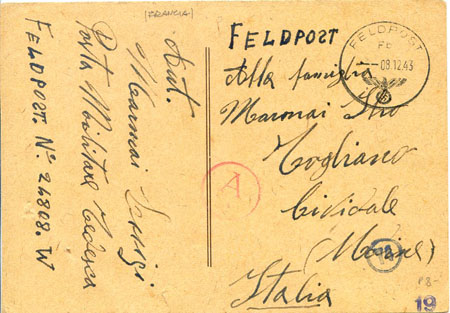 (FRANCIA)
Aut.
Marmai Luigi
Posta Militare Tedesca
FELDPOST. Nº. 24808. W
FELDPOST
FELDPOST
08.12.43
Alla famiglia
Togliano
Cividale
(Udine)
Italia
A
19